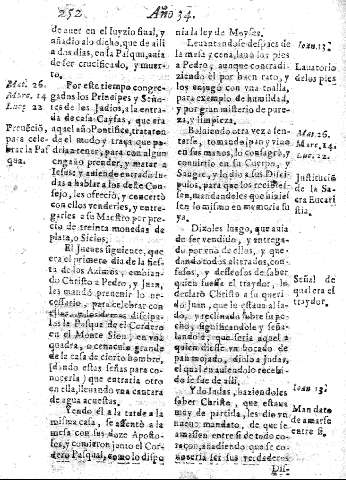 252 Año 34.
de auer en el juyzio final, y
añadio alo dicho, que de alli
a dos dias, en la Pascua, auia
de ser crucificado, y muer-
to.
Por este tiempo congre-
gados los Principes y Seño-
res de los Iudios, a la entra-
da de casa Cayfas, que era
aquel año Pontifice, trataron
del modo y traça que po-
drian tener, para con algun
engaño prender, y matar a
Iesus: y asiendo entrado Iu-
das a hablar a los de e Con-
sejo, les ofreciò, y concertò
con ellos venderles, y entre-
garles a su Maestro por pre-
cio de treinta monedas de
plata, o Siclos.
El Jueues siguiente, que
era el primero dia de la fies-
ta de los Azimos, embian-
do Christo a Pedro, y Juan,
les mandò preuenir lo ne-
cessario, para celebrar con
ellos, y los demas discipu-
los la Pasqua de el Cordero
en el Monte Sion, en vna
quadra, o cenaculo grande
de la casa de cierto hombre,
(dando estas señas para co-
nocerla) que entraria otro
en ella, lleuando vna cantara
de agua acuestas.
Yendo èl a la tarde a la
misma casa, se assentò a la
mesa con sus doze Aposto-
les, y comieron junto el Cor-
dero Pasqual, como lo dispo
Mat. 26.
Marc. 14
Luc. 22
Preuẽciõ,
para cele
brar la Pas
qua.
nia la ley de Moyses.
Leuantandose despues de
la mesa y cena, lauò los pies
a Pedro, aunque contradi-
ziendo èl por buen rato, y
los enjugò con vna toalla,
para exemplo de humildad,
y por gran misterio de pure-
za, y limpieza.
Boluiendo otra vez a sen-
tarse, tomando pan y vino
en sus manos, lo consagrò, y
conuirtio en su Cuerpo, y
Sangre, y lo dio a sus Disci-
pulos, para que los recibies-
sen, mandandoles que hizies
sen lo mismo en memoria su
ya.
Dizoles luego, que auia
de ser vendido, y entrega-
do por vno de ellos, y que-
dando todos alterados, con-
fusos, y desseosos de saber
quien fuesse el traydor, lo
declarò Christo a su queri-
do Juan, que le estaua al la-
do, y reclinado sobre su pe-
cho, significandole y seña-
landole, que seria aquel a
quien diesse vn bocado de
pan mojado, diolo a Judas,
el qual en auiendolo recebi-
do se fue de alli.
Ydo Judas, haziendoles
saber Christo, que estaua
muy de partida, les dio vn
nueuo mandato, de que se
amassen entre si de todo co-
raçon, añadiendo que se co-
noceria ser sus verdaderos
Dis-
Ioan. 13.
Lauatorio
de los pies
Mat. 26.
Marc, 14.
Luc. 22.
Institució
de la Sa
cra Eucari
stia.
Señal de
qual era el
traydor.
Ioan 13.
Man dato
de amarse
entre si.